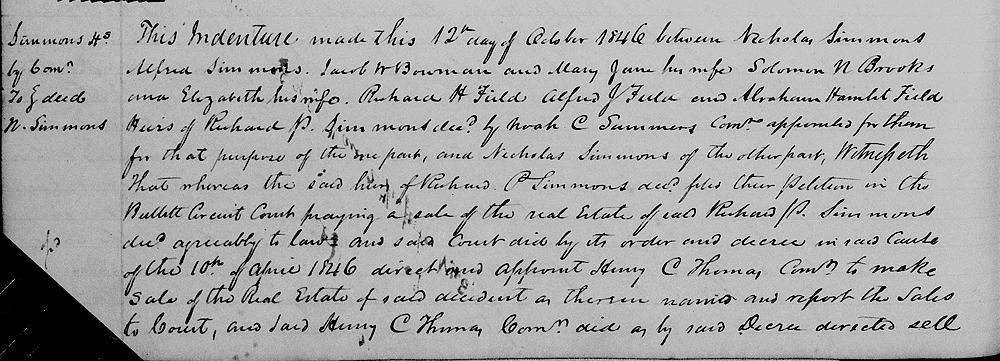 Simmons Hs
by Comr
To } deed
N. Simmons
This Indenture made this 12th day of October 1846 between Nicholas Simmons
Alfred Simmons. Jacob W Bowman and Mary Jane his wife Solomon N Brooks
and Elizabeth his wife. Richard H Field Alfred J Field and Abraham Hamlet Field
Heirs of Richard P. Simmons decd by Noah C Summers Comr appointed for them
for that purpose of the one part, and Nicholas Simmons of the other part, Witnesseth
That whereas the said heirs of Richard P Simmons decd filed their Petition in the
Bullett Circuit Court praying a sale of the real Estate of said Richard P. Simmons
decd agreeably to law and said Court did by its order and decree in said Cause
of the 10th of April 1846 direct and appoint Henry C Thomas Comr to make
Sale of the Real Estate of said decedent as therein named and report the Sales
to Court, and said Henry C Thomas Comr did as by said Decree directed sell